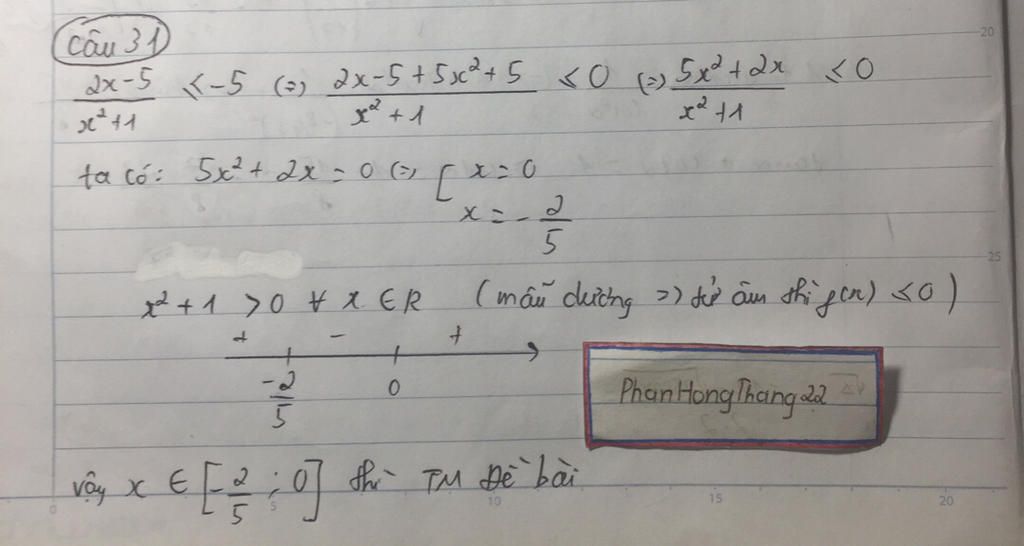 Câu 31
2x-5/x²+1 ≤ -5 (=) 2x-5+5x²+5/x²+1 ≤ 0 (=) 5x²+2x/x²+1 ≤ 0
ta có: 5x²+2x=0 (=) [ x=0
x=-2/5
x²+1 >0 ∀ x ∈ R (mẫu dương => tử âm thì f(x) ≤ 0)
+ - +
-2/5 0
PhanHongThang22
Vậy x ∈ [-2/5 ; 0] thì TM Đề bài
20
25
0 5 10 15 20